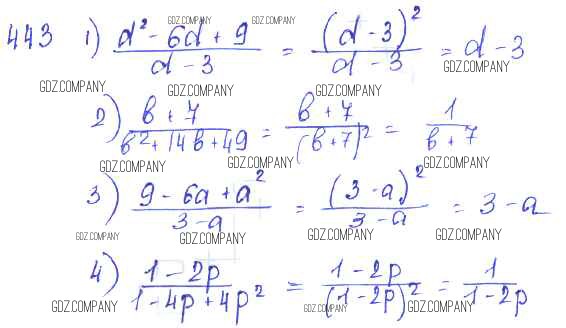 443 1) (d² - 6d + 9)/(d - 3) = (d - 3)²/(d - 3) = d - 3
2) (b + 7)/(b² + 14b + 49) = (b + 7)/(b + 7)² = 1/(b + 7)
3) (9 - 6a + a²)/(3 - a) = (3 - a)²/(3 - a) = 3 - a
4) (1 - 2p)/(1 - 4p + 4p²) = (1 - 2p)/(1 - 2p)² = 1/(1 - 2p)
GDZ.COMPANY GDZ.COMPANY
GDZ.COMPANY GDZ.COMPANY GDZ.COMPANY GDZ.COMPANY
GDZ.COMPANY GDZ.COMPANY GDZ.COMPANY
GDZ.COMPANY GDZ.COMPANY GDZ.COMPANY GDZ.COMPANY
GDZ.COMPANY GDZ.COMPANY GDZ.COMPANY GDZ.COMPANY